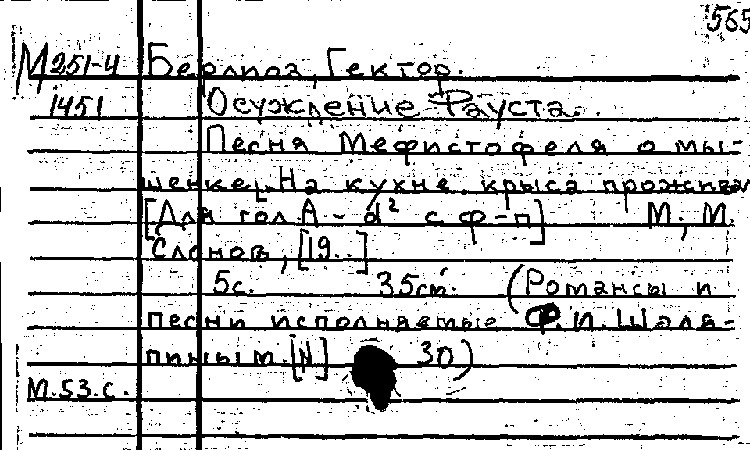 565
М 251-4 Берлиоз, Гектор.
1451 Осуждение Фауста.
Песня Мефистофеля о мы-
шенке. На кухне крыса прожива
[Для гол. A - d² с ф-п] М., М.
Слонов, [19..]
5с. 35см. (Романсы и
песни исполняемые Ф. И. Шаля-
пиным. [N] 30)
М.53.с.